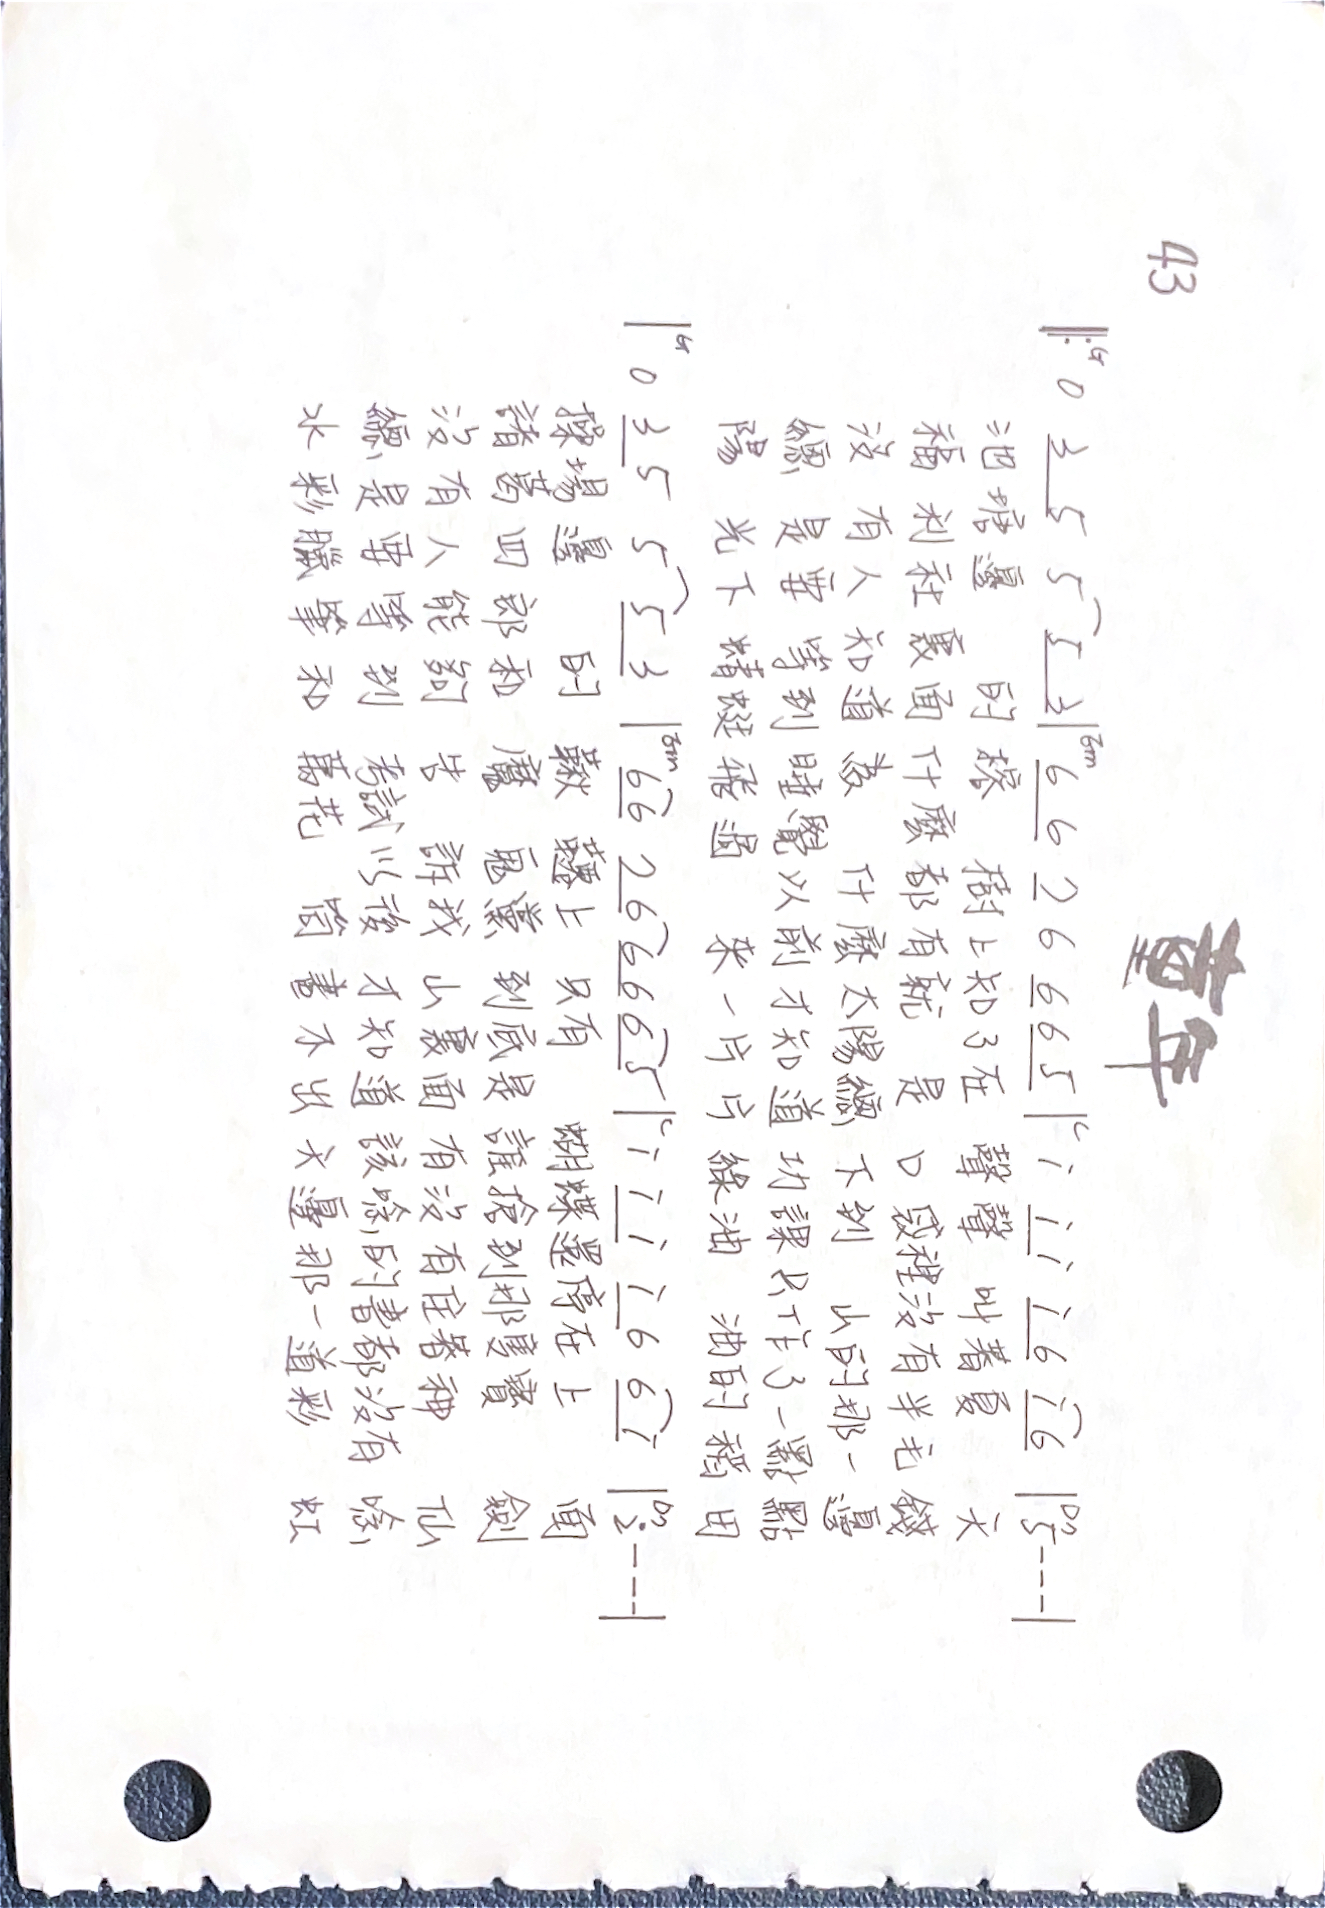 童年
43
‖: G 0 3 5 5 5 3 | Em 6 6 2 6 6 6 5 | C i i i i 6 i 6 | D7 5 - - - |
池塘邊 的榕 樹上知了在 聲聲 叫著夏 天
福利社裏面什麼都有就 是 口袋裡沒有半毛錢
沒有人知道為 什麼太陽總下到 山的那一邊
總是要等到睡覺以前才知道功課只作了一點點
陽光下蜻蜓飛過 來一片片綠油 油的稻田
| G 0 3 5 5 5 3 | Em 6 6 2 6 6 6 6 5 | C i i i i 6 6 i | D7 2 - - - |
操場邊 的 鞦 韆上 只有 蝴蝶還停在上 面
諸葛四郎和 魔 鬼黨 到底是誰搶到那隻寶 劍
沒有人能夠 告 訴我 山裏面有沒有住著神 仙
總是要等 到 考試以後 才知道該唸的書都沒有唸
水彩臘筆和 萬花 筒畫不出天邊那一道彩 虹